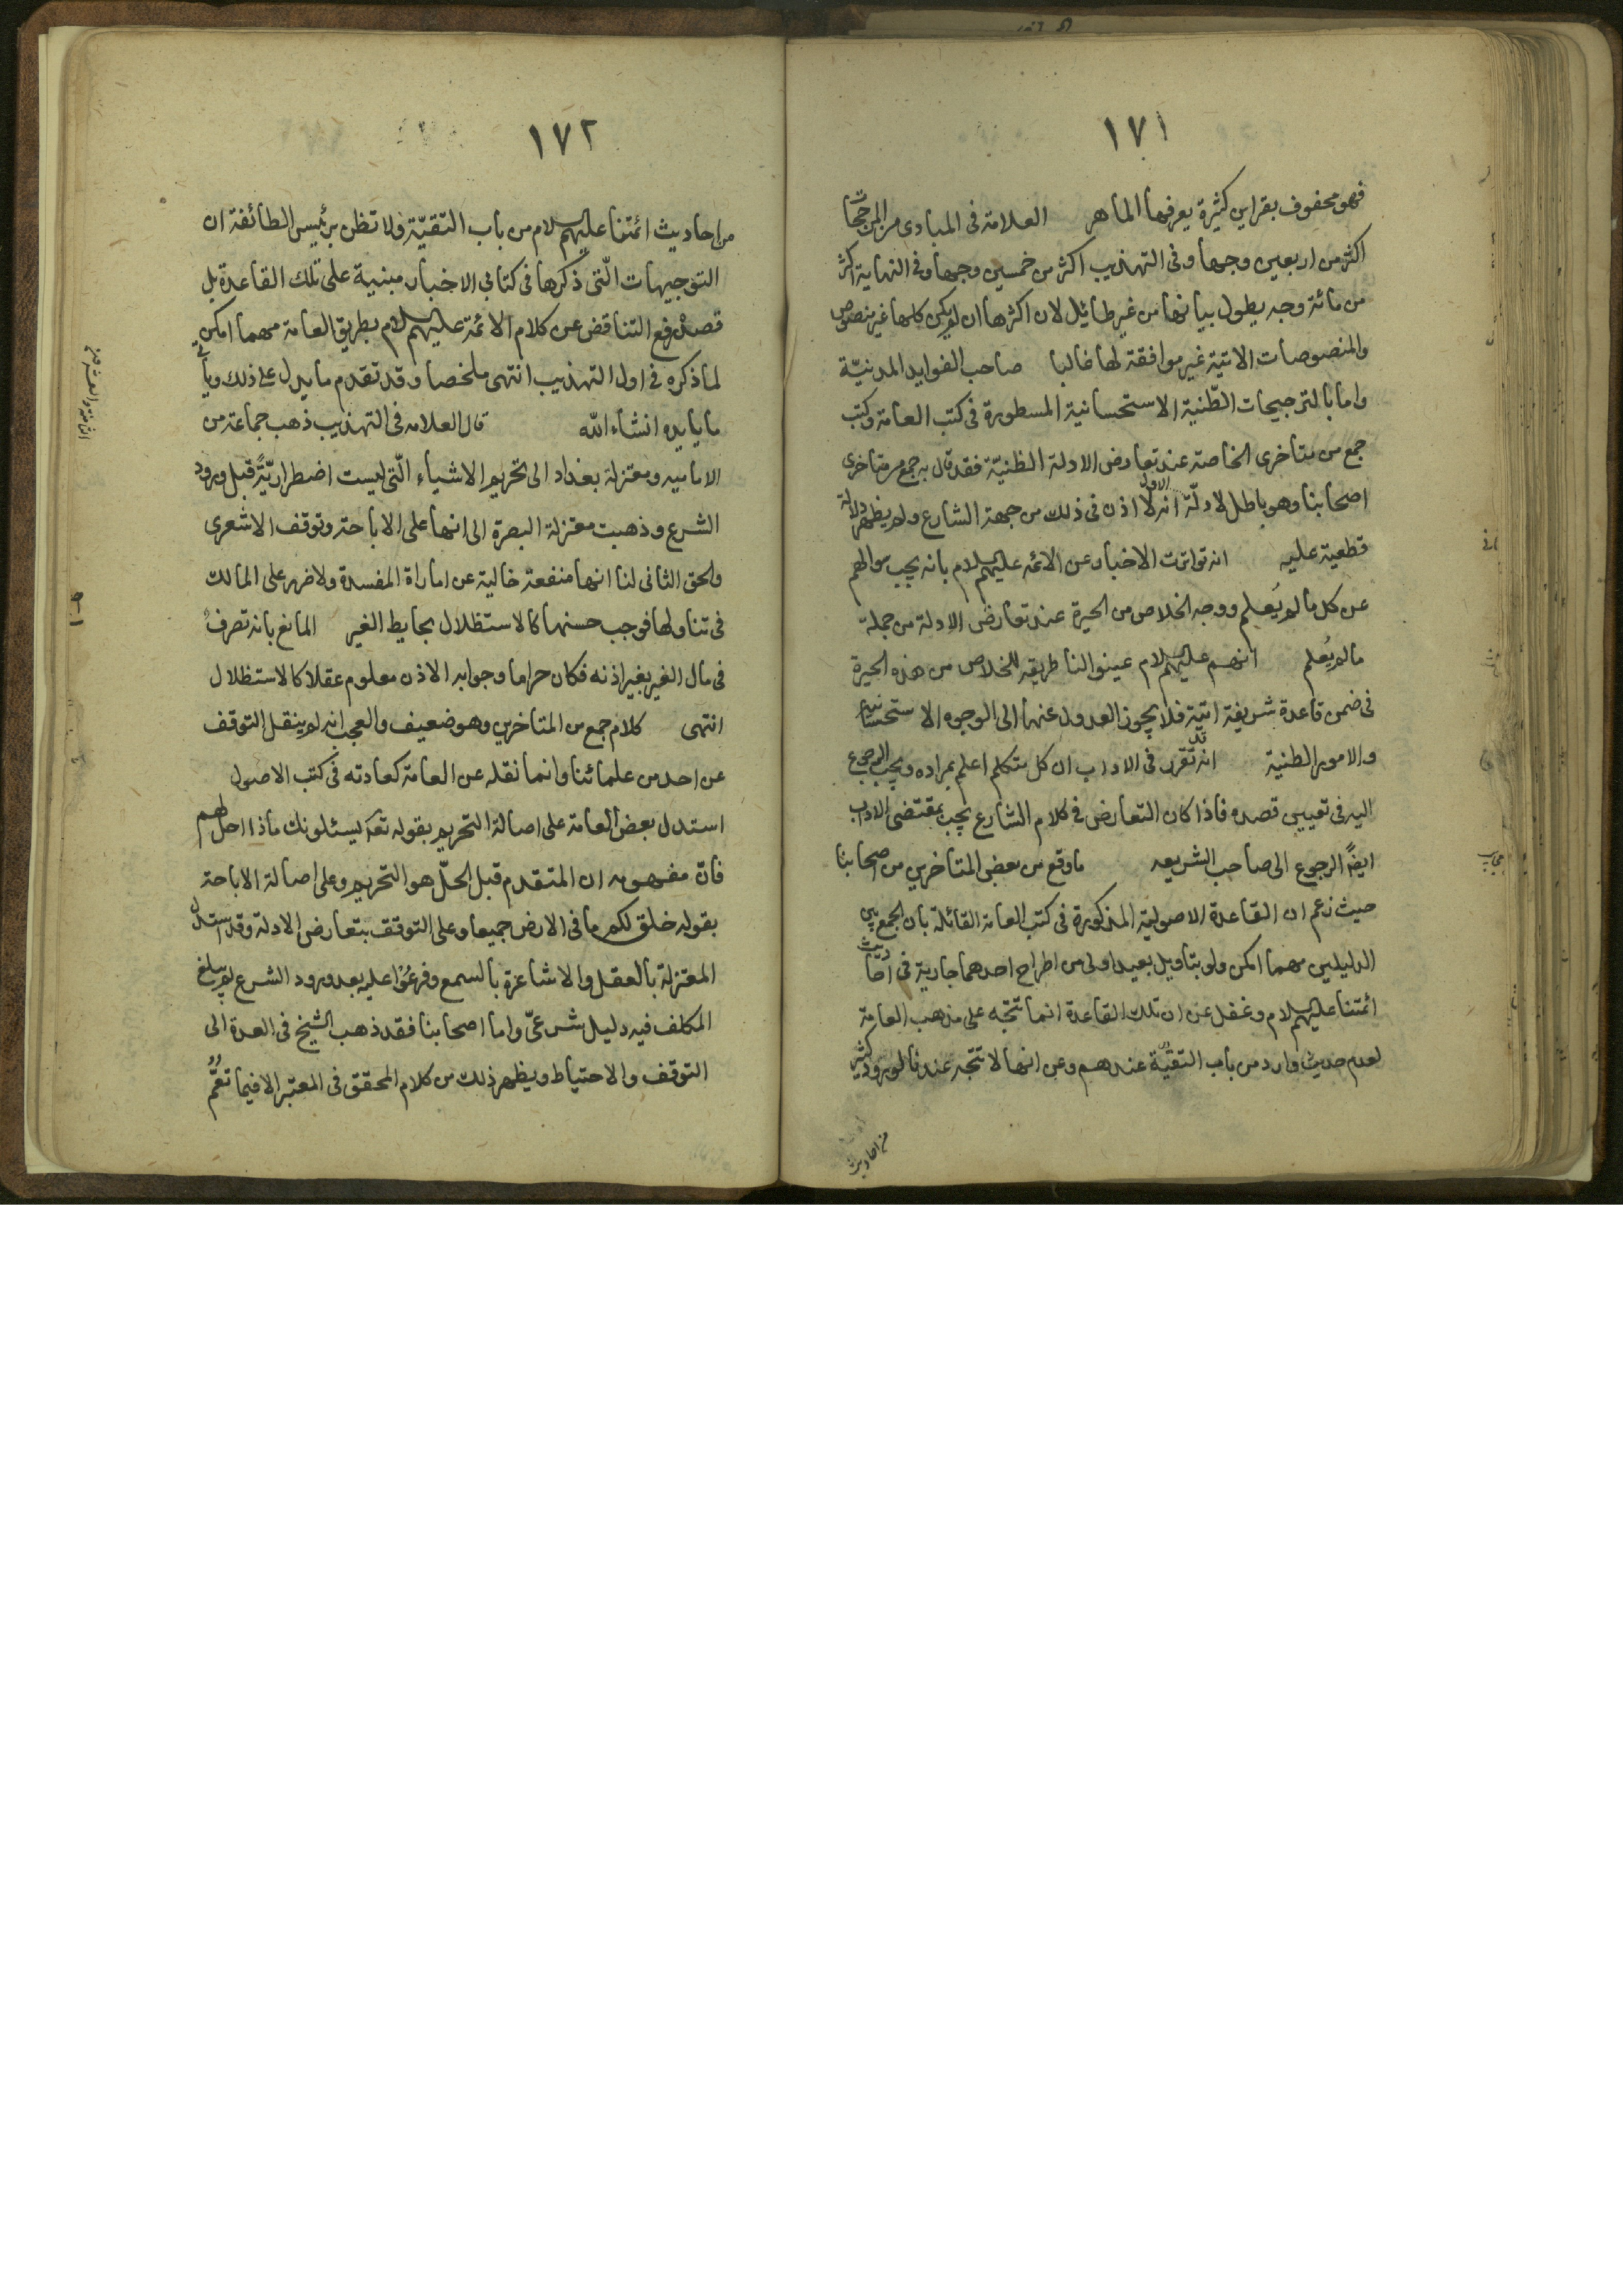 ١٧١
فهو محفوف بقراين كثيرة يعرفها الماهر العلامة فى المبادى من المرجحات
اكثر من اربعين وجها وفى التهذيب اكثر من خمسين وجها وفى النهاية اكثر
من مائة وجه يطول بيانها من غير طائل لان اكثرها ان لم يكن كلها غير منصوص
والمنصوصات الاتية غير موافقة لها غالبا صاحب الفوايد المدنيّة
واما بالترجيحات الظّنية الاستحسانية المسطورة فى كتب العامة وكتب
جمع من متاخرى الخاصة عند تعارض الادلة الظنيّة فقد قال به جمع من متاخرى
اصحابنا وهو باطل لادلّة الاول انه لا اذن فى ذلك من جهة الشارع ولم يظهر دلالة
قطعية عليه انه تواترت الاخبار عن الائمه عليهم السلام بانه يجب سوالهم
عن كل ما لم يُعلم ووجه الخلاص من الحيرة عند تعارض الادلة من جملة
ما لم يُعلم انهم عليهم السلام عينوا لنا طريقه للخلاص من هذه الحيرة
فى ضمن قاعدة شريفة اتيّة فلا يجوز العدول عنها الى الوجوه الاستحسانية
والامور الظنية انه قد تقرر فى الاداب ان كل متكلم اعلم بمراده ويجب الرجوع
اليه فى تعيين قصده فاذا كان التعارض فى كلام الشارع يجب بمقتضى الاداب
ايضًا الرجوع الى صاحب الشريعه ما وقع من بعض المتاخرين من اصحابنا
حيث زعم ان القاعدة الاصولية المذكورة فى كتب العامة القائلة بان الجمع بين
الدليلين مهما امكن ولو بتاويل بعيد اولى من اطراح احدهما جارية فى احاديث
ائمتنا عليهم السلام وغفل عن ان تلك القاعدة انما تتجه على مذهب العامة
لعدم حديث وارد من باب التقيّة عندهم وعن انها لا تتجه عندنا لورود كثير
من احاديث
١٧٢
من احاديث ائمتنا عليهم السلام من باب التقيّة ولا تظن برئيس الطائفة ان
التوجيهات الّتى ذكرها فى كتابى الاخبار مبنية على تلك القاعدة بل
قصده رفع التناقض عن كلام الائمة عليهم السلام بطريق العامة مهما امكن
لما ذكره فى اول التهذيب انتهى ملخصا وقد تقدم ما يدل على ذلك وياتى
ما يايده انشاء الله قال العلامه فى التهذيب ذهب جماعة من
الاماميه ومعتزلة بغداد الى تحريم الاشياء الّتى ليست اضطراريّةً قبل ورود
الشرع وذهبت معتزلة البصرة الى انها على الاباحة وتوقف الاشعرى
والحق الثانى لنا انها منفعة خالية عن اماراة المفسدة ولا ضرر على المالك
فى تناولها فوجب حسنها كالاستظلال بحايط الغير المانع بانه تصرف
فى مال الغير بغير اذنه فكان حراما وجوابه الاذن معلوم عقلا كالاستظلال
انتهى كلام جمع من المتاخرين وهو ضعيف والعجب انه لم ينقل التوقف
عن احد من علمائنا وانما نقله عن العامة كعادته فى كتب الاصول
استدل بعض العامة على اصالة التحريم بقوله تعه يسئلونك ماذا احل لهم
فانّ مفهومه ان المتقدم قبل الحلّ هو التحريم وعلى اصالة الاباحة
بقوله خلق لكم ما فى الارض جميعا وعلى التوقف بتعارض الادلة وقد استدلّ
المعتزلة بالعقل والاشاعرة بالسمع وفرعُوا عليه بعد ورود الشرع لو لم يبلغ
المكلف فيه دليل شرعىّ واما اصحابنا فقد ذهب الشيخ فى العدة الى
التوقف والاحتياط ويظهر ذلك من كلام المحقق فى المعتبر الا فيما تعُمُّ